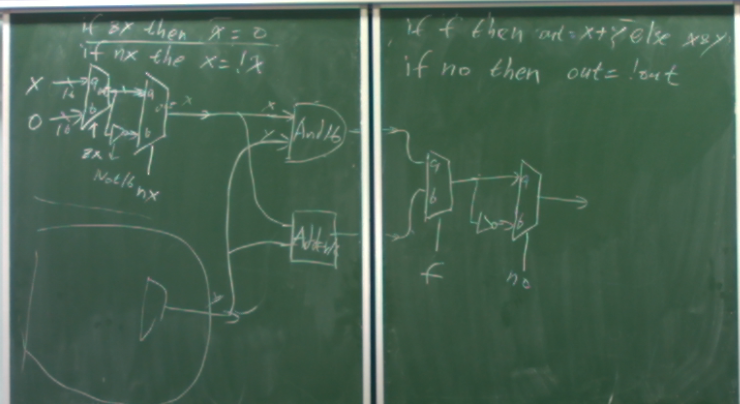 if zx then x = 0
if nx the x = !x
X 16 a a x
0 16 b b
zx
Not16
nx
x
y
And16
Add16
y
if f then out = x+y else x&y
if no then out = !out
a
b
f
a
b
no